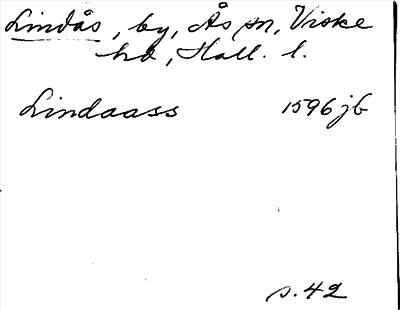 Lindås, by, Ås sn, Viske
hd, Hall. l.
Lindaass 1596 jb
s. 42